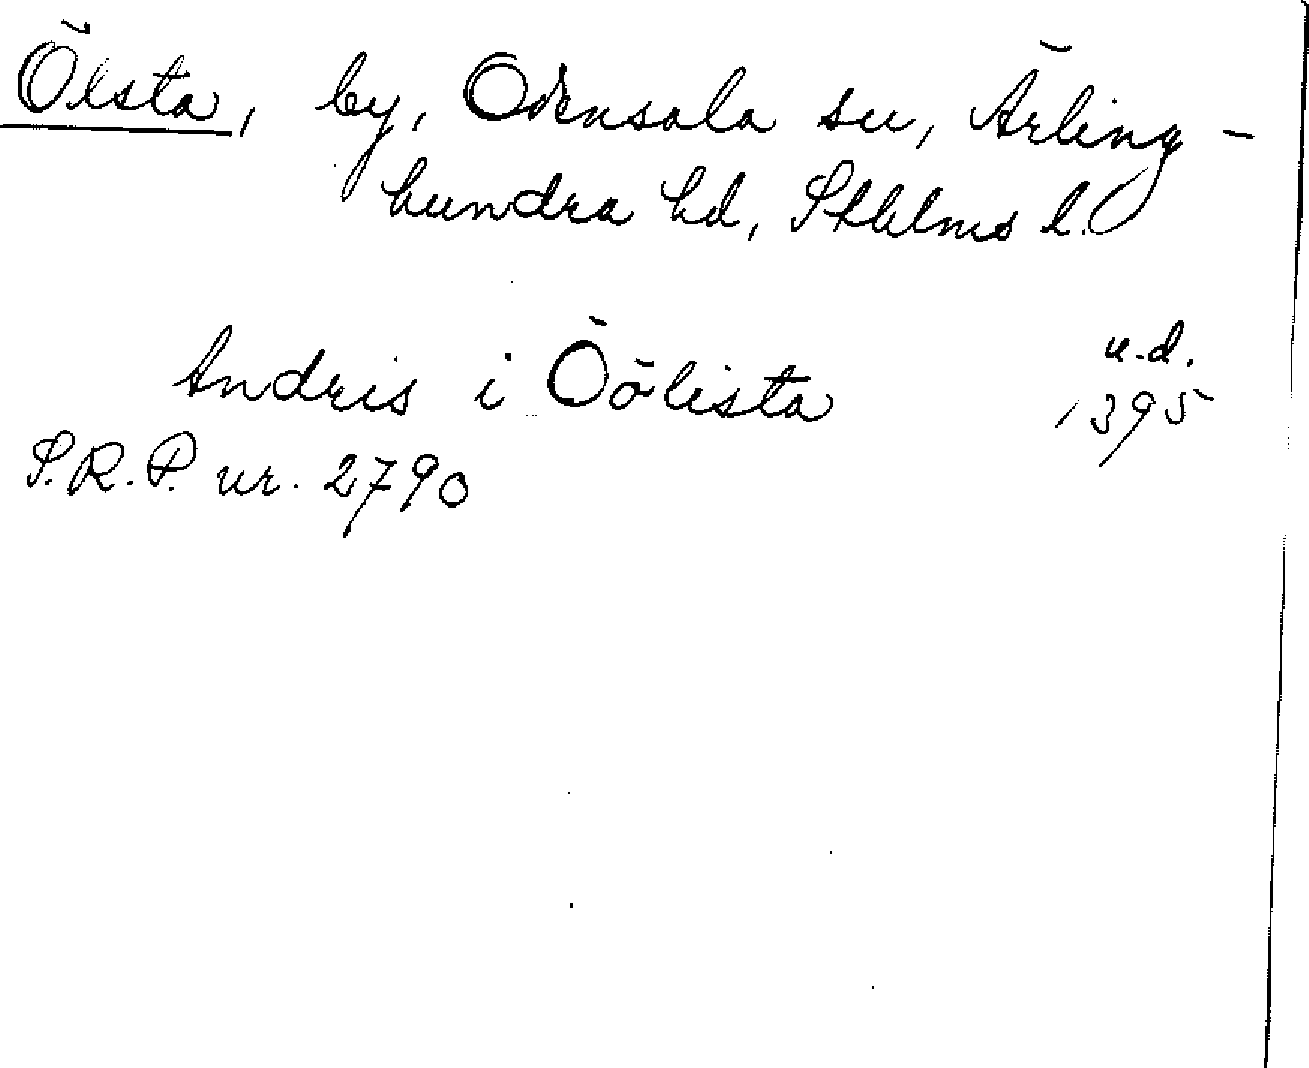 Ölsta, by, Odensala sn, Ärling-
hundra hd, Sthlms l.
Andris i Öölista
u.d.
1395
S.R.P. nr. 2790